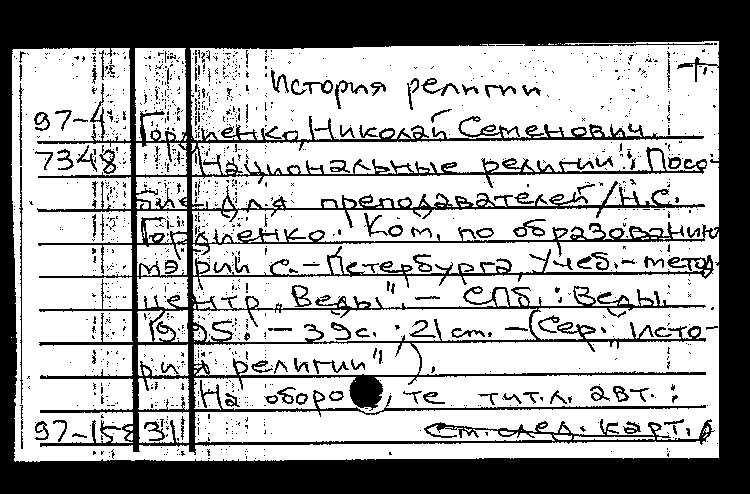 История религии
97-4 Гордиенко, Николай Семенович.
7348 Национальные религии: Посо-
бие для преподавателей / Н.С.
Гордиенко. Ком. по образованию
мэрии С.-Петербурга, Учеб.-метод.
центр "Веды". - СПб.: Веды.
1995. - 39с.; 21 ст. - (Сер. "Исто-
рия религии").
На оборо те тит.л. авт.:
97-15831 См. след. карт.